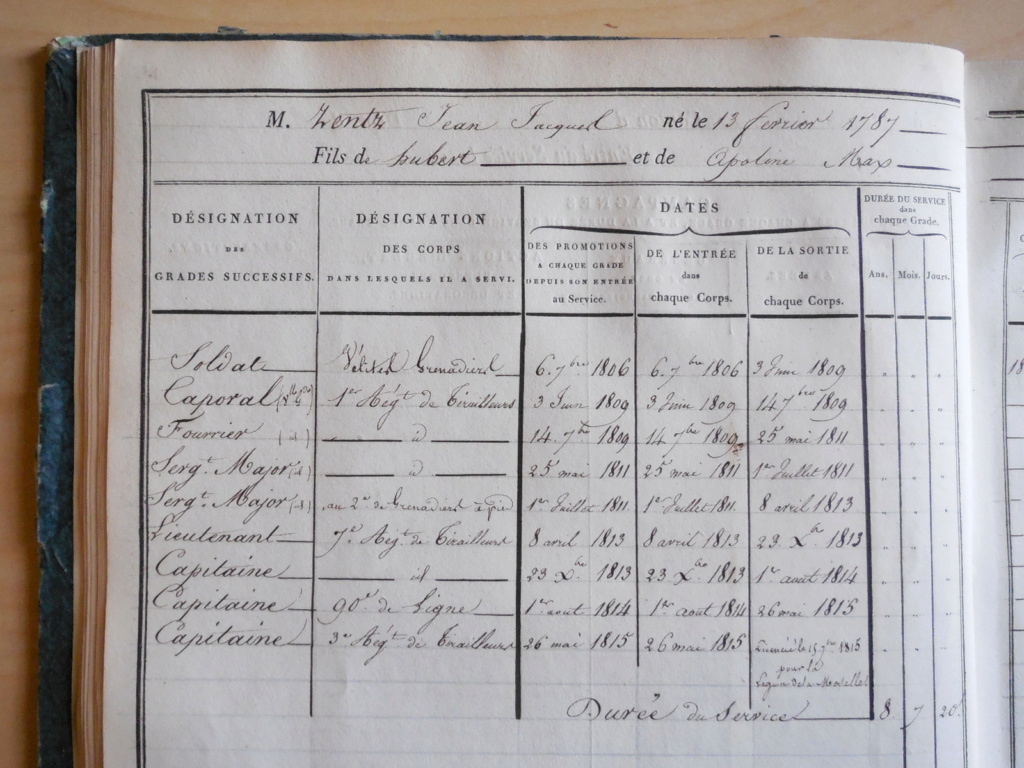 M. Zentz Jean Jacques né le 13 février 1787
Fils de hubert et de Apoline Max
DÉSIGNATION DES GRADES SUCCESSIFS.
DÉSIGNATION DES CORPS DANS LESQUELS IL A SERVI.
DATES
DES PROMOTIONS A CHAQUE GRADE DEPUIS SON ENTRÉE au Service.
DE L'ENTRÉE dans chaque Corps.
DE LA SORTIE de chaque Corps.
DURÉE DU SERVICE dans chaque Grade.
Ans. Mois. Jours.
Soldat Vélites Grenadiers 6. 7bre 1806 6. 7bre 1806 3 Juin 1809
Caporal 1er Régt. de Tirailleurs 3 Juin 1809 3 Juin 1809 14 7bre 1809
Fourrier id 14. 7bre 1809 14 7bre 1809 25 mai 1811
Sergt. Major id 25 mai 1811 25 mai 1811 1er Juillet 1811
Sergt. Major au 2e. de Grenadiers à pied 1er Juillet 1811 1er Juillet 1811. 8 avril 1813
Lieutenant 7e. Régt. de Tirailleurs 8 avril 1813 8 avril 1813 23. Xbre 1813
Capitaine id 23 Xbre 1813 23 Xbre 1813 1er aout 1814
Capitaine 90e. de Ligne 1er aout 1814 1er aout 1814 26 mai 1815
Capitaine 3e Régt. de Tirailleurs 26 mai 1815 26 mai 1815 Licencié le 15 7bre 1815
pour la
Légion de la Moselle
Durée du Service 8 7 20